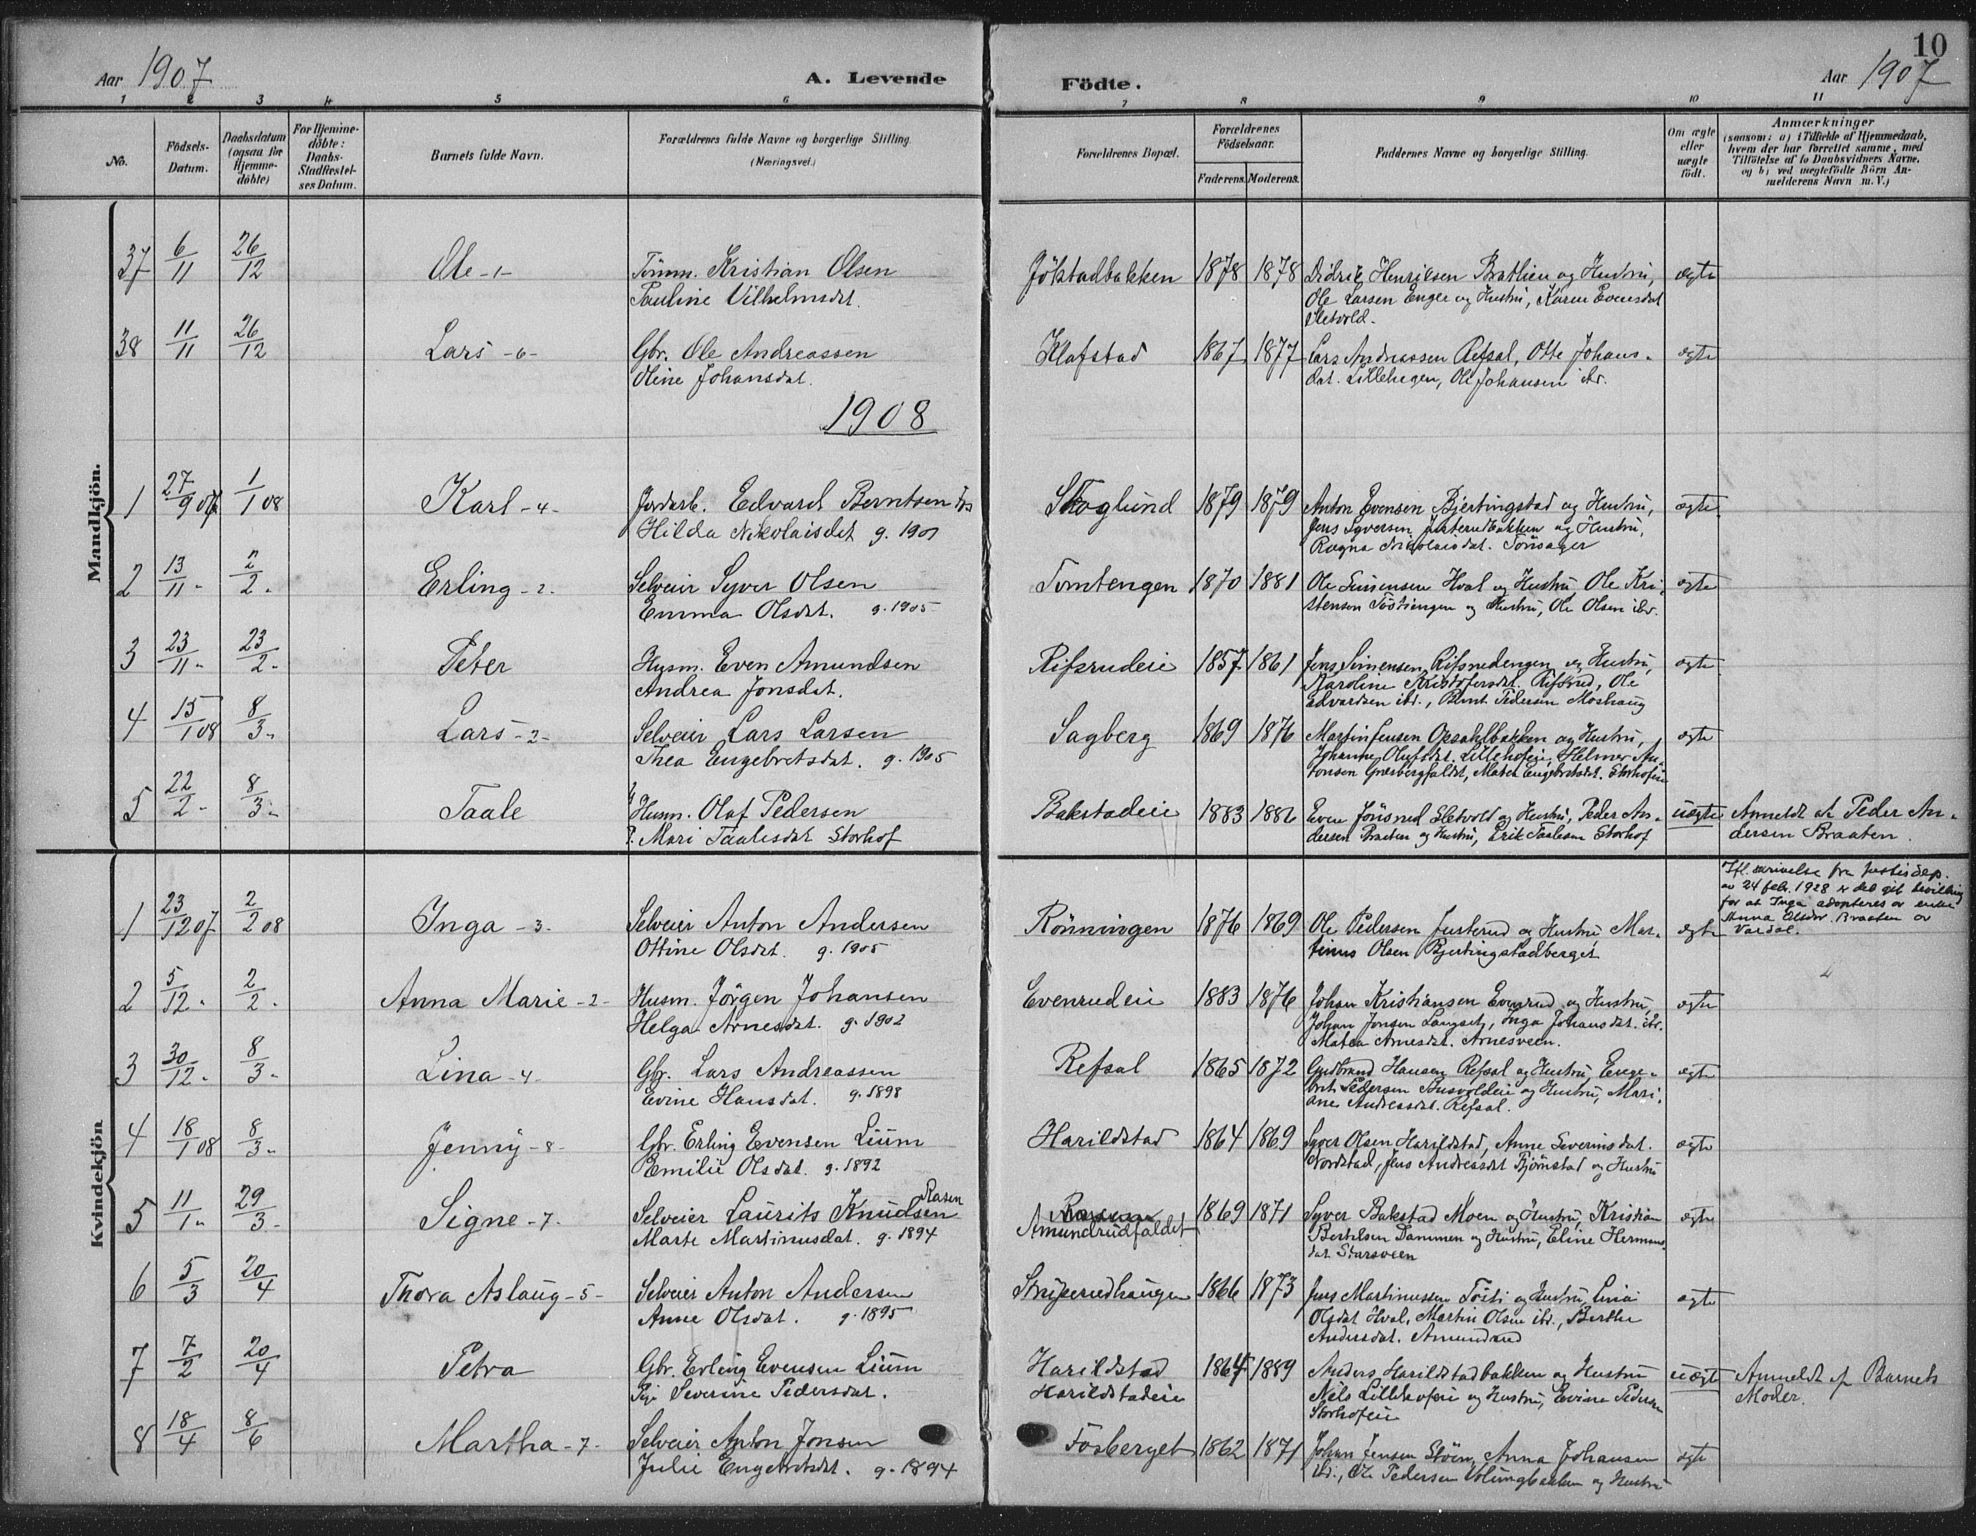 10
Aar 1907 A. Levende Födte. Aar 1907
1 2 3 4 5 6 7 8 9 10 11
No. Födsels-Datum. Daabsdatum (ogsaa for Hjemme-döbte) For Hjemme-döbte: Daabs-Stadfæstel-ses Datum. Barnets fulde Navn. Forældrenes fulde Navne og borgerlige Stilling. (Næringsvei.) Forældrenes Bopæl. Forældrenes Födselsaar. Faderens. Moderens. Faddernes Navne og borgerlige Stilling. Om ægte eller uægte födt. Anmærkninger (saasom: a) i Tilfælde af Hjemmedaab, hvem der har forrettet samme, med Tilföielse af to Daabsvidners Navne, og b) ved uægtefödte Börn An-melderens Navn m. V.)
Mandkjön.
37 6/11 26/12 Ole -1- Tömm. Kristian Olsen Jölstadbakken 1878 1878 Didrik Henriksen Bratlien og Hustru, ægte
Pauline Vilhelmsdat. Ole Larsen Enger og Hustru, Karen Evensdat
Sletvold.
38 11/11 26/12 Lars -6- Gbr. Ole Andreassen Klafstad 1867 1877 Lars Andreassen Refsal, Otte Johans- ægte
Oline Johansdat. dat. Lillehagen, Ole Johansen ibd.
1908
1 27/9 07 1/1 08 Karl -4- Jordarb. Edvard Berntsen Skoglund 1879 1879 Anton Evensen Bjertingstad og Hustru, ægte
Hilda Nikolaisdat g. 1901 Jens Syversen Justerudbakken og Hustru,
Ragna Nikolaisdat. Tönsager
2 13/11 - 2/2 - Erling -2- Selveier Syver Olsen Tomtengen 1870 1881 Ole Simensen Hval og Hustru, Ole Kri- ægte
Emma Olsdat. g. 1905 stensen Töstiengen og Hustru, Ole Olsen ibd.
3 23/11 - 23/2 - Peter Husm. Even Amundsen Rifsrudeie 1857 1861 Jens Simensen Rifsrudengen og Hustru, ægte
Andrea Jonsdat. Karoline Kristofersdat. Rifsrud, Ole
Edvardsen ibd., Bernt Pedersen Moshaug
4 15/1 08 8/3 - Lars -2- Selveier Lars Larsen Sagberg 1869 1876 Martin Jensen Opsahlbakken og Hustru, ægte
Thea Engebretsdat. g. 1905 Johanne Olufsdat. Lillehofeie, Helmer An-
tonsen Græsbergfaldet, Mathea Engebretsdat. Storhofeie
5 22/2 - 8/3 - Taale Husm. Olaf Pedersen Bakstadeie 1883 1886 Even Jönsrud Sletvold og Hustru, Peder An- uægte Anmeldt af Peder An-
P. Mari Taalesdat Storhof dersen Braaten og Hustru, Erik Taalesen Storhof dersen Braaten.
Kvindekjön
Ifl. skrivelse fra Justisdep.
av 24 feb. 1928 er det git bevilling
for at Inga adopteres av enke
Anna Olsdtr. Braaten av
Vardal.
1 23/12 07 2/2 08 Inga -3- Selveier Anton Andersen Rönningen 1876 1869 Ole Pedersen Justerud og Hustru, Mar- ægte
Ottine Olsdat. g. 1905 tinus Olsen Bjertingstadberget
2 5/12 - 2/2 - Anna Marie -2- Husm. Jörgen Johansen Evenrudeie 1883 1876 Johan Kristiansen Evenrud og Hustru, ægte
Helga Arnesdat. g. 1902 Johan Jonsen Langset, Inga Johansdat. ibd.
Mathea Arnesdat. Arnesveen.
3 30/12 - 8/3 - Lina -4- Gbr. Lars Andreassen Refsal 1865 1872 Gudbrand Hansen Refsal og Hustru, Enge- ægte
Evine Hansdat. g. 1898 bret Pedersen og Hustru, Mari-
ane Andreasdat. Refsal.
4 18/1 08 8/3 - Jenny -8- Gbr. Erling Evensen Lium Harildstad 1864 1869 Syver Olsen Harildstad, Anne Severinsdat. ægte
Emilie Olsdat. g. 1892 Nordstad, Jens Andreasdat Björnstad og Hustru
5 11/1 - 29/3 - Signe -7- Selveier Laurits Knudsen Rasen Amundrudfaldet 1869 1871 Syver Bakstad Moen og Hustru, Kristian ægte
Marte Martinusdat. g. 1894 Bertelsen Dammen og Hustru, Eline Hermans-
dat Starsveen
6 5/3 20/4 Thora Aslaug -5- Selveier Anton Andersen Striperudhaugen 1866 1873 Jens Martinussen Tösti og Hustru, Lina ægte
Anne Olsdat. g. 1895 Olsdat Hval, Martin Olsen ibd., Berthe
Andersdat. Amundrud
7 7/2 20/4 Petra Gbr. Erling Evensen Lium Harildstad 1864 1889 Anders Harildstadbakken og Hustru uægte Anmeldt af Barnets
Pige Severine Pedersdat. Harildstadeie Nils Lillehofeie og Hustru, Evine Pedersen Moder.
Storhofeie
8 18/4 8/6 Martha -7- Selveier Anton Jonsen Fosberget 1862 1871 Johan Jensen Stöen, Anna Johansen ægte
Julie Engebretsdat. g. 1894 ibd., Ole Pedersen Volungbakken og Hustru